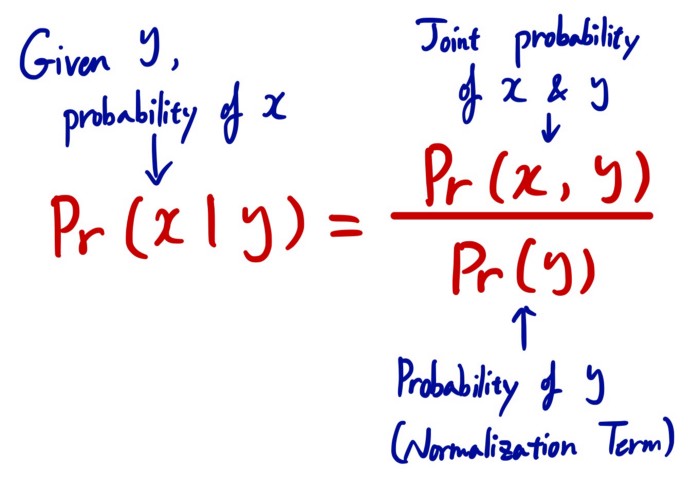 Given y,
probability of x
Joint probability
of x & y
Pr(x|y) = Pr(x, y)
Pr(y)
Probability of y
(Normalization Term)